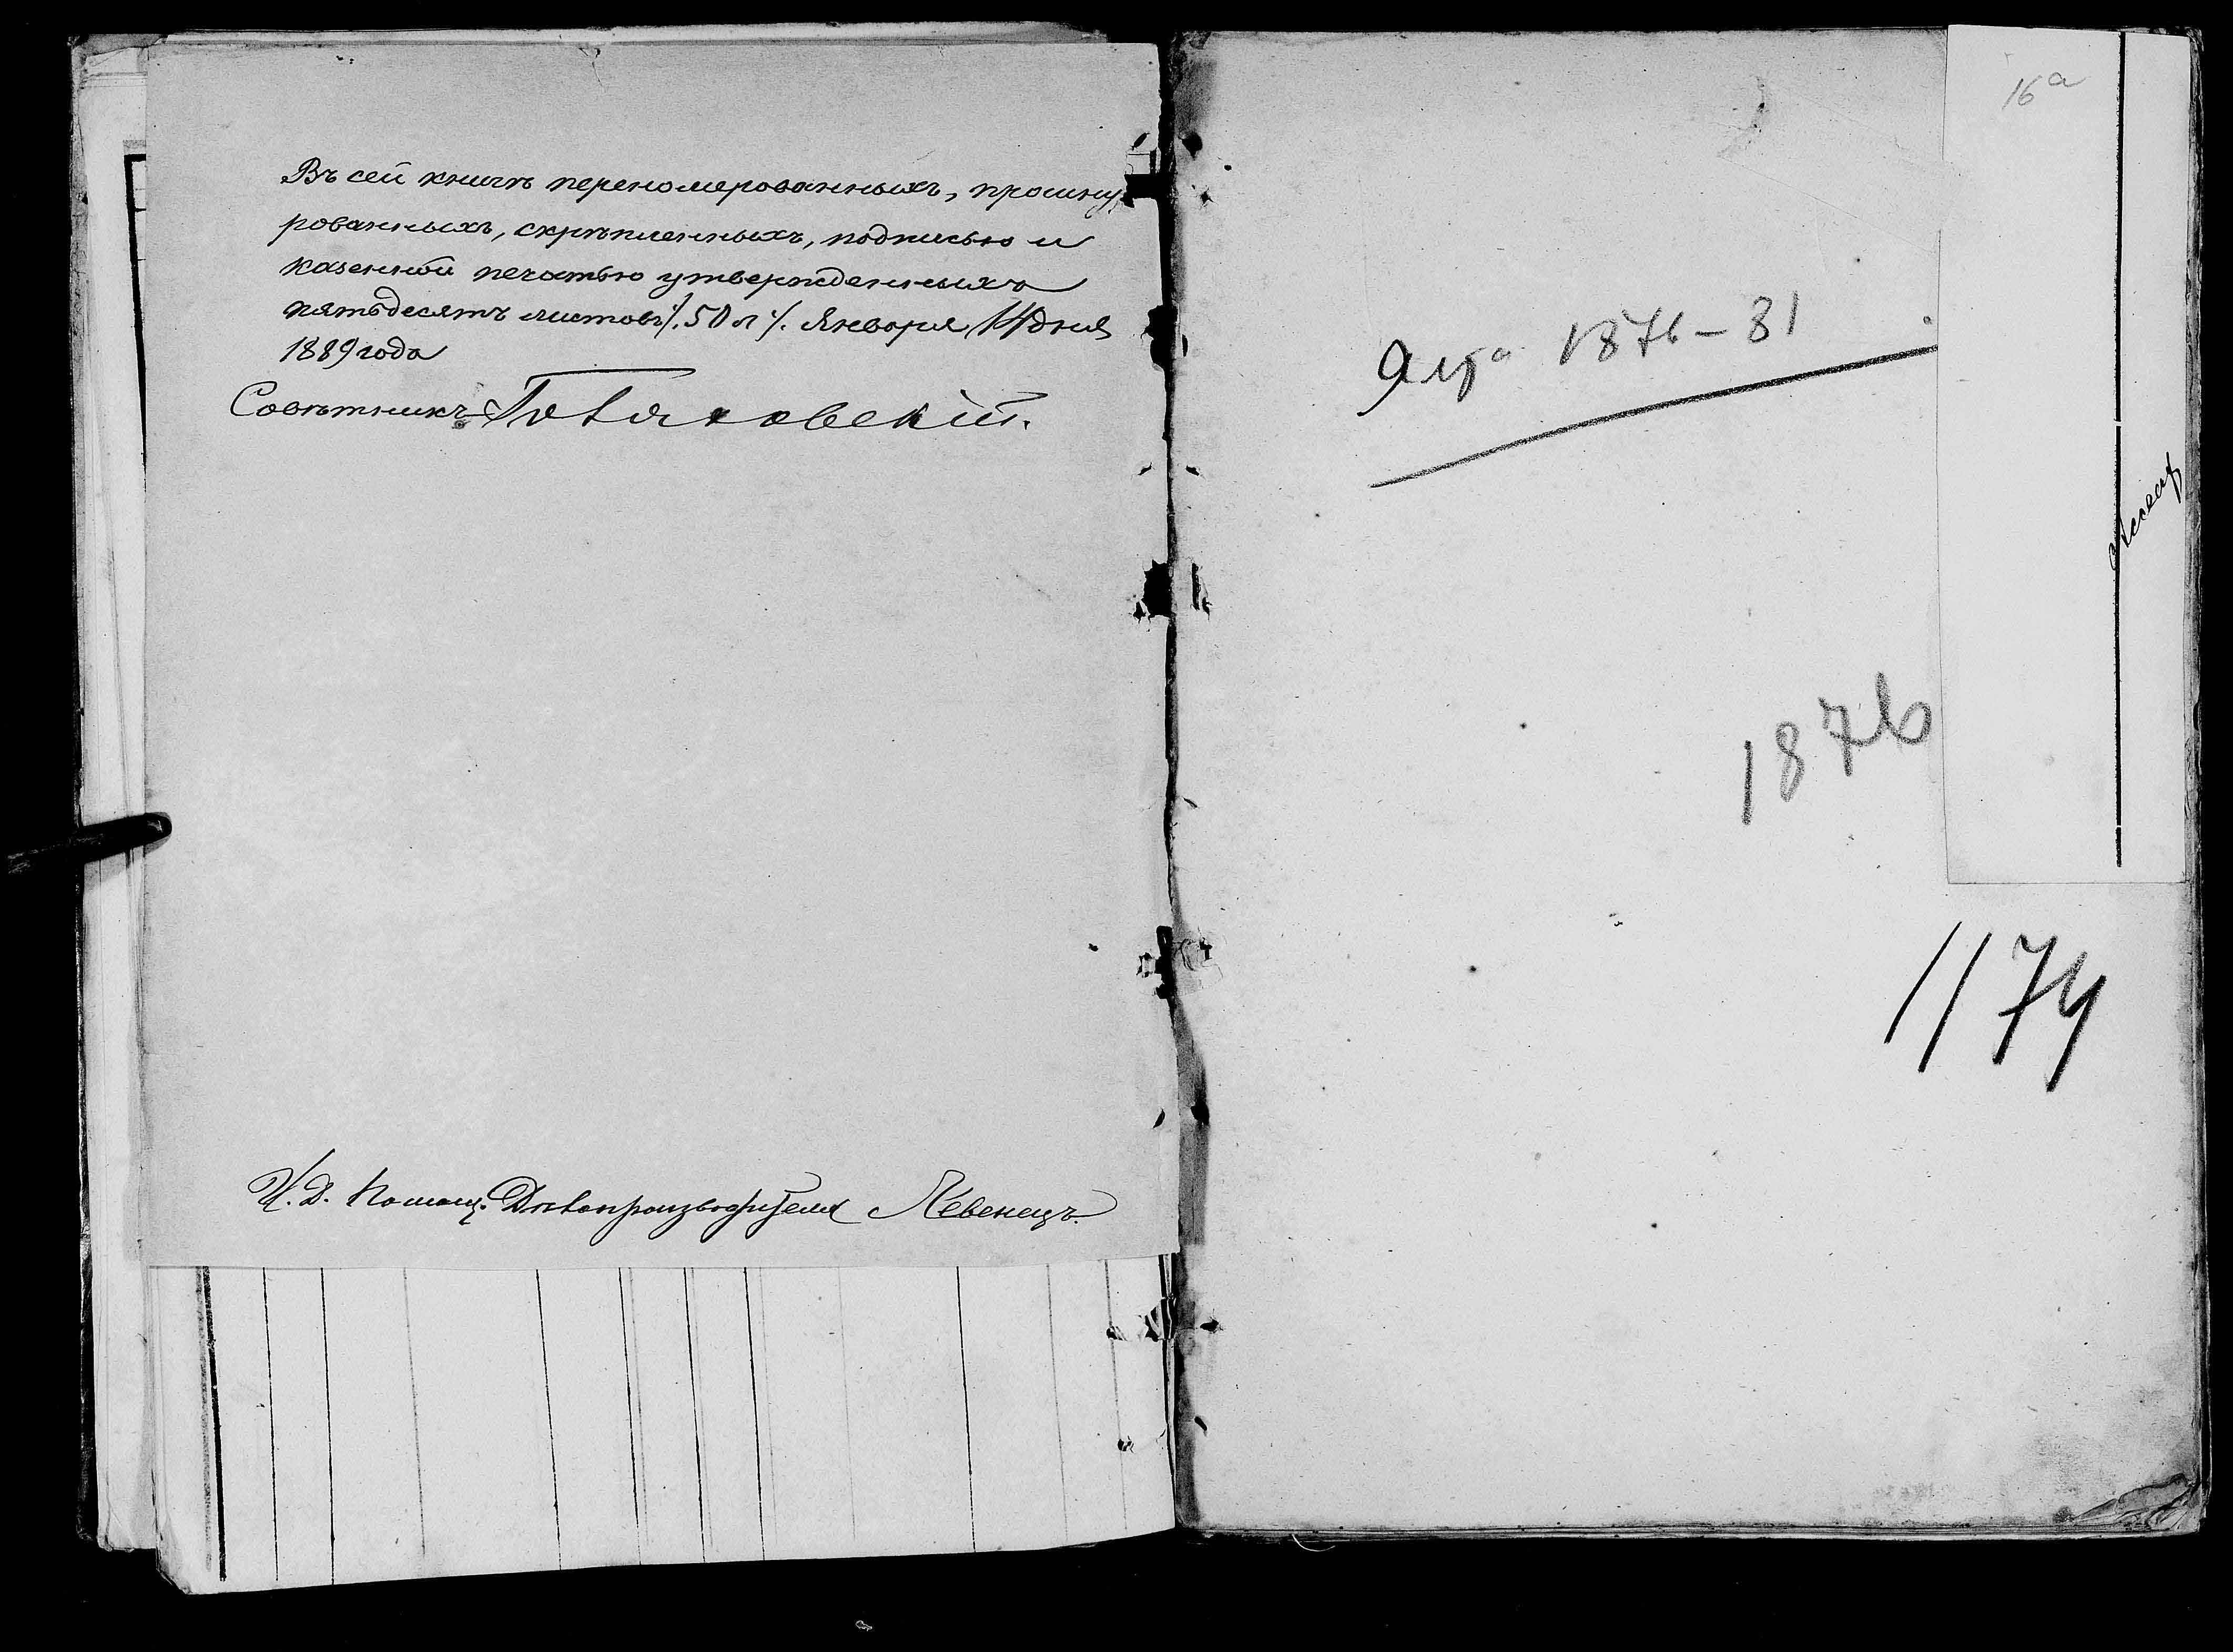 Въ сей книгѣ переномерованныхъ, прошну-
рованныхъ, скрѣпленныхъ, подписью и
казенной печатью утвержденныхъ
пятьдесятъ листовъ /.50 л/. Января 14 дня
1889 года
Совѣтникъ
И. Д. Помощ. Дѣлопроизводителя Левенецъ.
16а
Ялта 1876-81
1876
1174